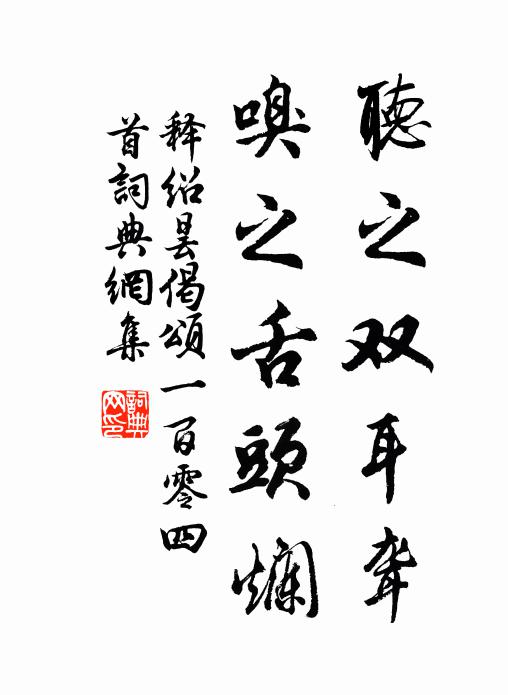 聽之双耳聋
嗅之舌頭爛
释绍昙偈頌一百零四
首詞典網集
詞典网印